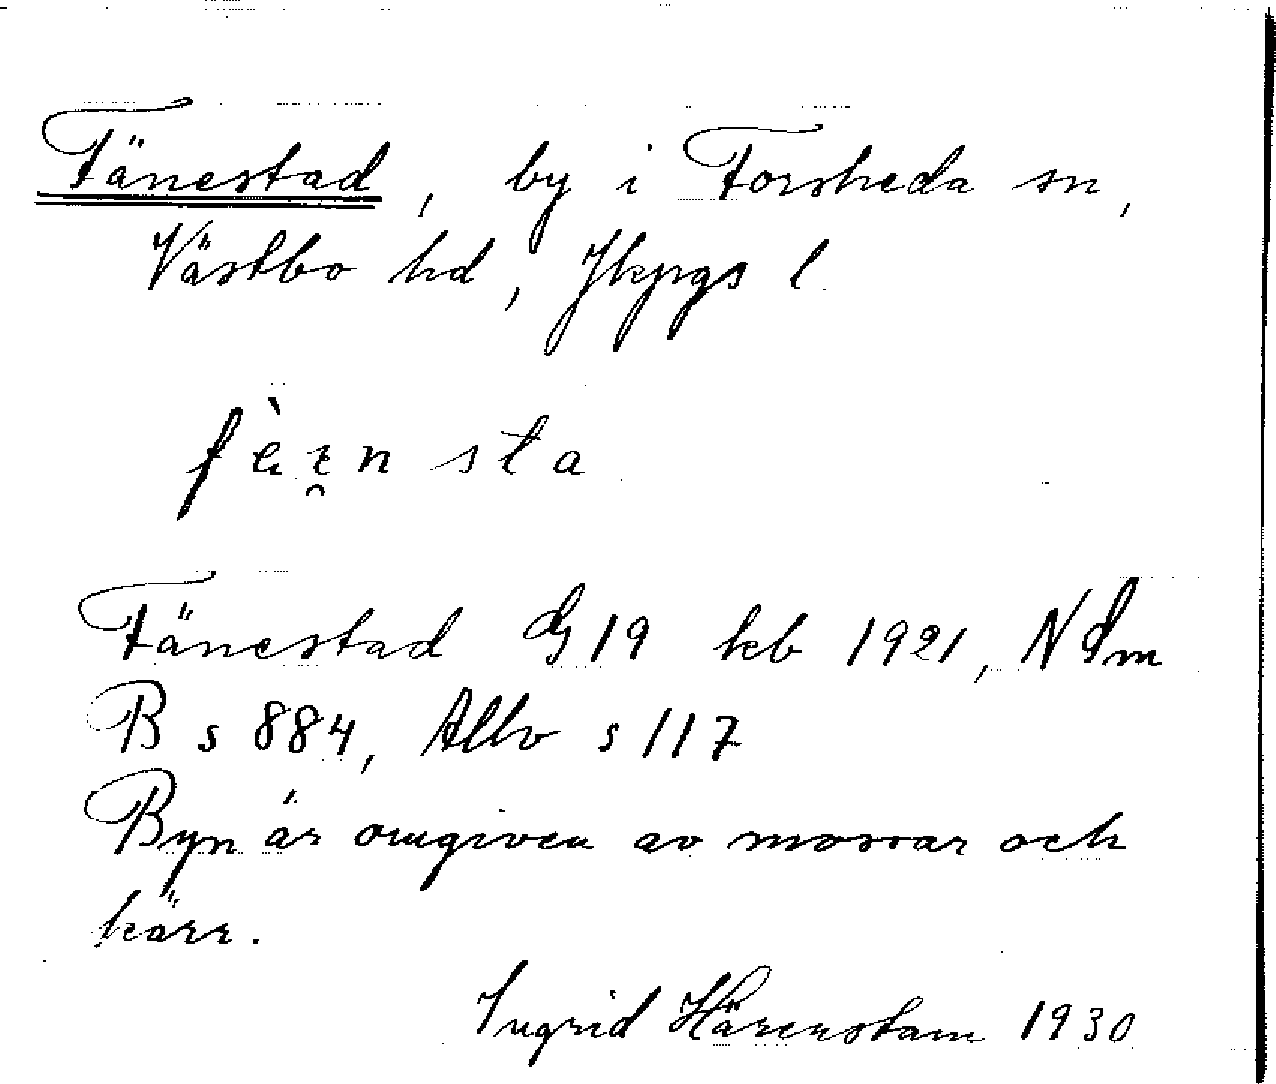 Fänestad, by i Forsheda sn,
Västbo hd, Jkpgs l
Fänestad G 19 kb 1921, N Sm
B s 884, Allv s 117
Byn är omgiven av mossar och
kärr.
Ingrid Härenstam 1930